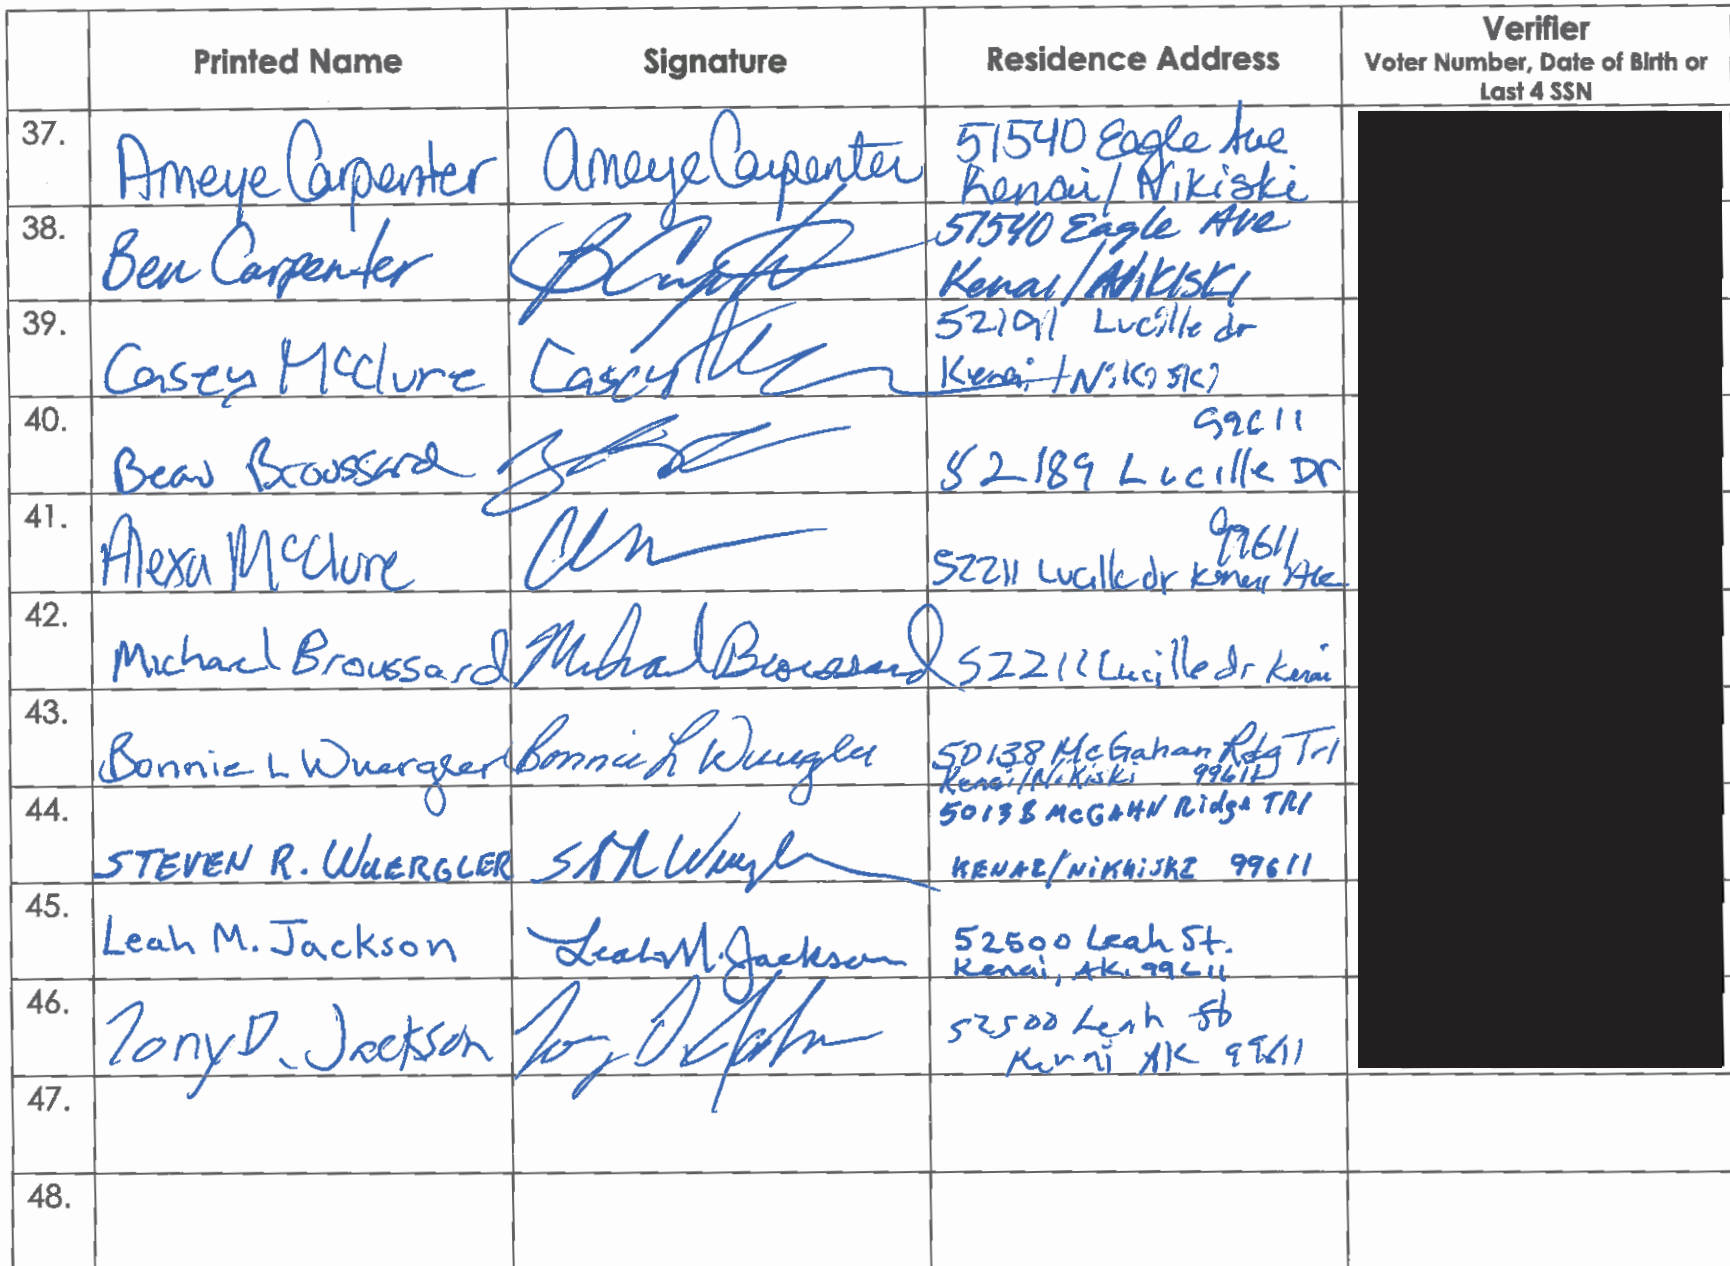 Printed Name Signature Residence Address Verifier
Voter Number, Date of Birth or
Last 4 SSN
37. Ameye Carpenter Ameye Carpenter 51540 Eagle Ave
Kenai/Nikiski
38. Ben Carpenter 51540 Eagle Ave
Kenai/Nikiski
39. Casey McClure Casey 52191 Lucille dr
Kenai/Nikiski
40. 99611
Beau Broussard 52189 Lucille Dr
41. 99611
Alexa McClure 52211 Lucille dr Kenai
42. Michael Broussard Michael Broussard 52211 Lucille dr Kenai
43. Bonnie L Wuergler Bonnie L Wuergler 50138 McGahan Rdg Trl
Kenai/Nikiski 99611
44. 50138 McGAHN Ridge TRl
STEVEN R. WUERGLER KENAI/NiKiiSKI 99611
45. Leah M. Jackson Leah M. Jackson 52500 Leah St.
Kenai, AK. 99611
46. Tony D. Jackson 52500 Leah St
Kenai AK 99611
47.
48.